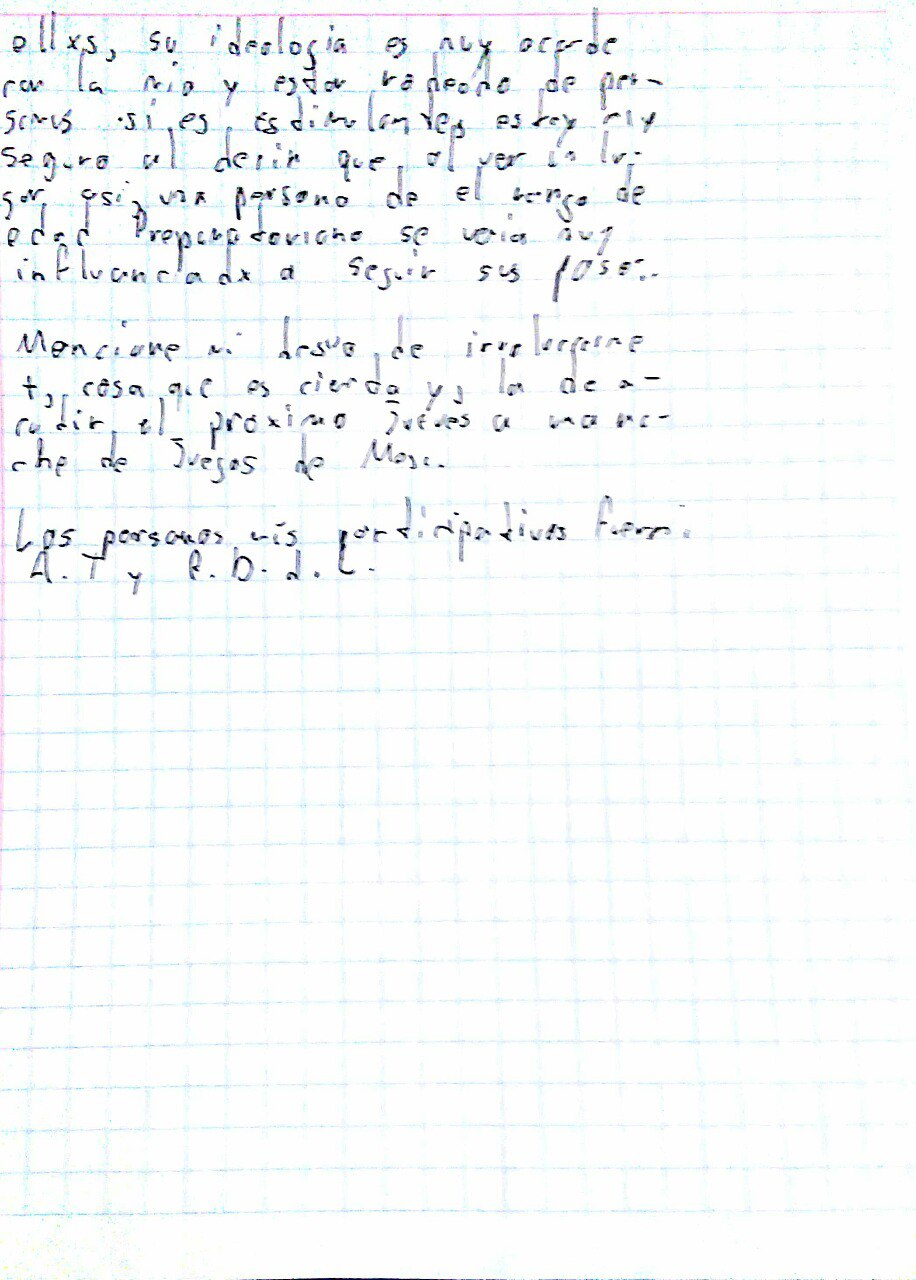 ellxs, su ideologia es muy acorde
con la mia y estar rodeado de per-
sonas si es estimulantes, estoy muy
seguro al decir que, al ver un lu-
gar asi, unx persona de el rango de
edad Preparatoriano se veria muy
influenciadx a seguir sus pasos.
Mencione mi deseo de involucrarme
+, cosa que es cierta y, la de a-
cudir el proximo Jueves a una no-
che de Juegos de Mesa.
Las personas más participativas fueron:
A. T y R. D. d. L.